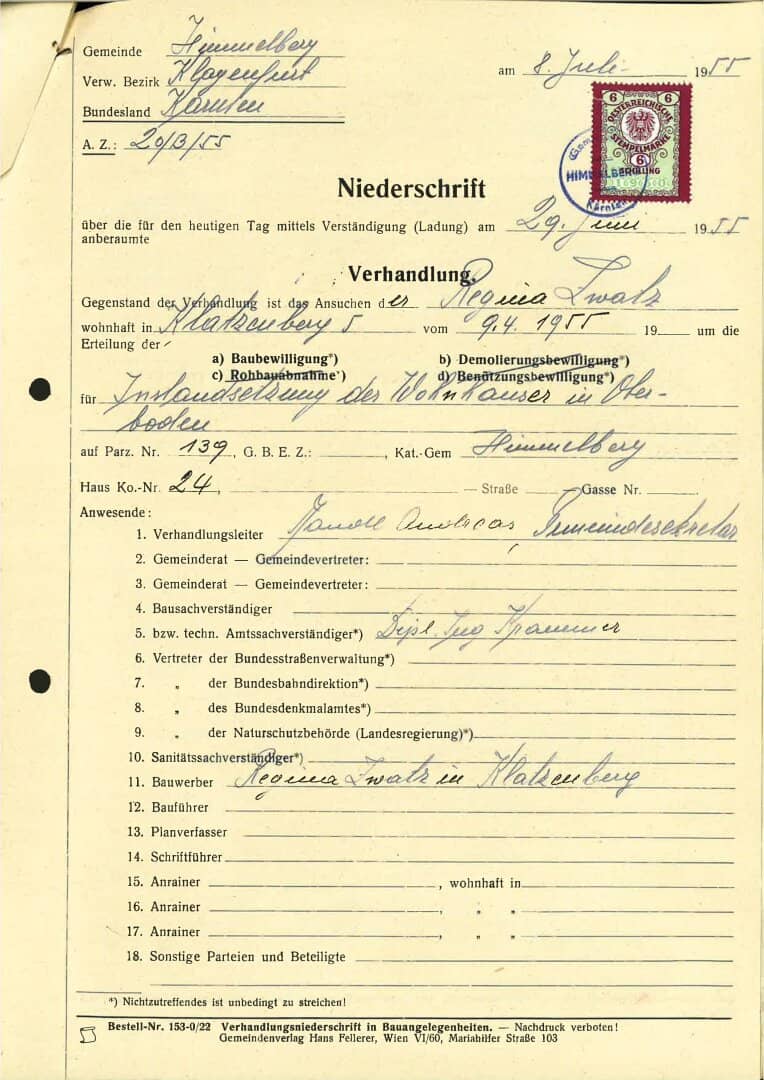 Gemeinde Himmelberg
am 8. Juli 1955
Verw. Bezirk Klagenfurt
Bundesland Kärnten
A. Z.: 20/B/55
6 6
ÖSTERREICHISCHE
STEMPELMARKE
6
SCHILLING
Gem
HIMMELBERG
Kärnten
Niederschrift
über die für den heutigen Tag mittels Verständigung (Ladung) am 29. Juni 1955
anberaumte
Verhandlung.
Gegenstand der Verhandlung ist das Ansuchen der Regina Zwatz
wohnhaft in Klatzenberg 5 vom 9.4. 1955 19 um die
Erteilung der
a) Baubewilligung*) b) Demolierungsbewilligung*)
c) Rohbauabnahme*) d) Benützungsbewilligung*)
für Instandsetzung der Wohnhäuser in Ober-
boden
auf Parz. Nr. 139, G. B. E. Z.: , Kat.-Gem Himmelberg
Haus Ko.-Nr. 24, — Straße — Gasse Nr.
Anwesende:
1. Verhandlungsleiter Andreas Gemeindesekretar
2. Gemeinderat — Gemeindevertreter:
3. Gemeinderat — Gemeindevertreter:
4. Bausachverständiger
5. bzw. techn. Amtssachverständiger*) Dipl. Ing Krammer
6. Vertreter der Bundesstraßenverwaltung*)
7. „ der Bundesbahndirektion*)
8. „ des Bundesdenkmalamtes*)
9. „ der Naturschutzbehörde (Landesregierung)*)
10. Sanitätssachverständiger*)
11. Bauwerber Regina Zwatz in Klatzenberg
12. Bauführer
13. Planverfasser
14. Schriftführer
15. Anrainer , wohnhaft in
16. Anrainer , „ „
17. Anrainer , „ „
18. Sonstige Parteien und Beteiligte
*) Nichtzutreffendes ist unbedingt zu streichen!
Bestell-Nr. 153-0/22 Verhandlungsniederschrift in Bauangelegenheiten. — Nachdruck verboten!
Gemeindenverlag Hans Fellerer, Wien VI/60, Mariahilfer Straße 103